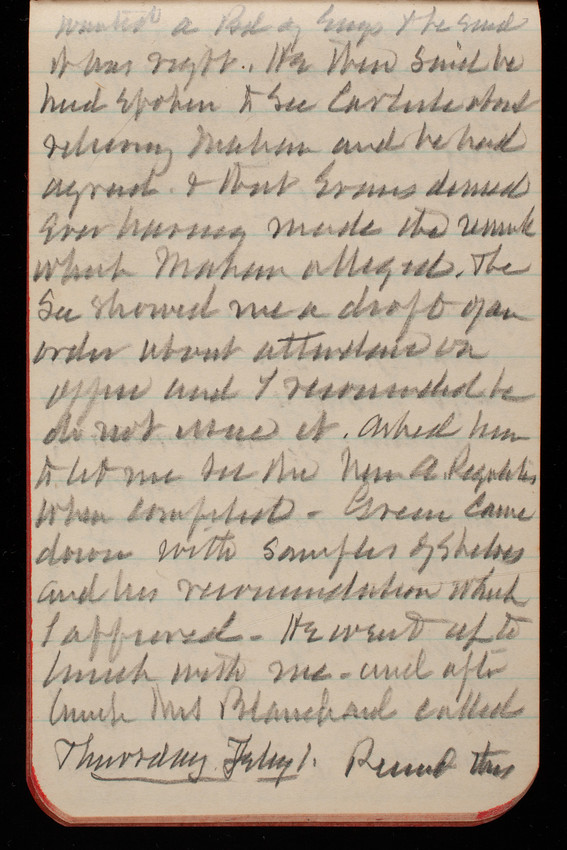 wanted a Bd of Engs & he said
it was right. He then said he
had spoken to Sec Carlisle about
relieving Mahan and he had
agreed. & that Evans denied
ever having made the remark
which Mahan alleged. The
Sec showed me a draft of an
order about attendance on
office and I recommended he
do not issue it. Asked him
to let me see the New A. Regulatis
when completed - Green came
down with samples of shelves
and his recommendation which
I approved - He went up to
lunch with me - and after
lunch Mrs Blanchard called
Thursday Feby 1. Recud this